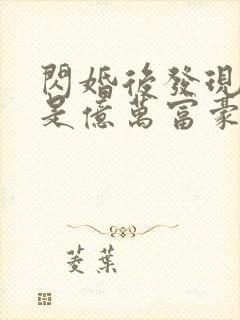 閃婚後發現
是億萬富豪
菱葉